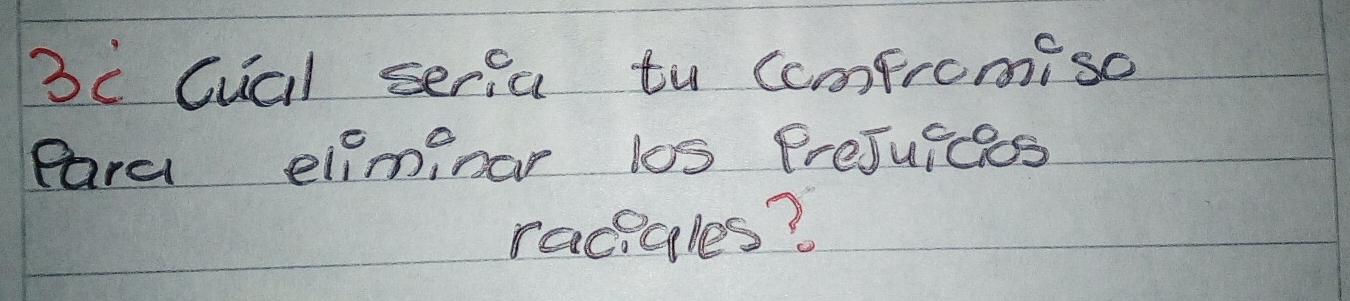 3¿ Cúal seria tu Comfromiso
Para eliminar los Prejuicios
raciales?